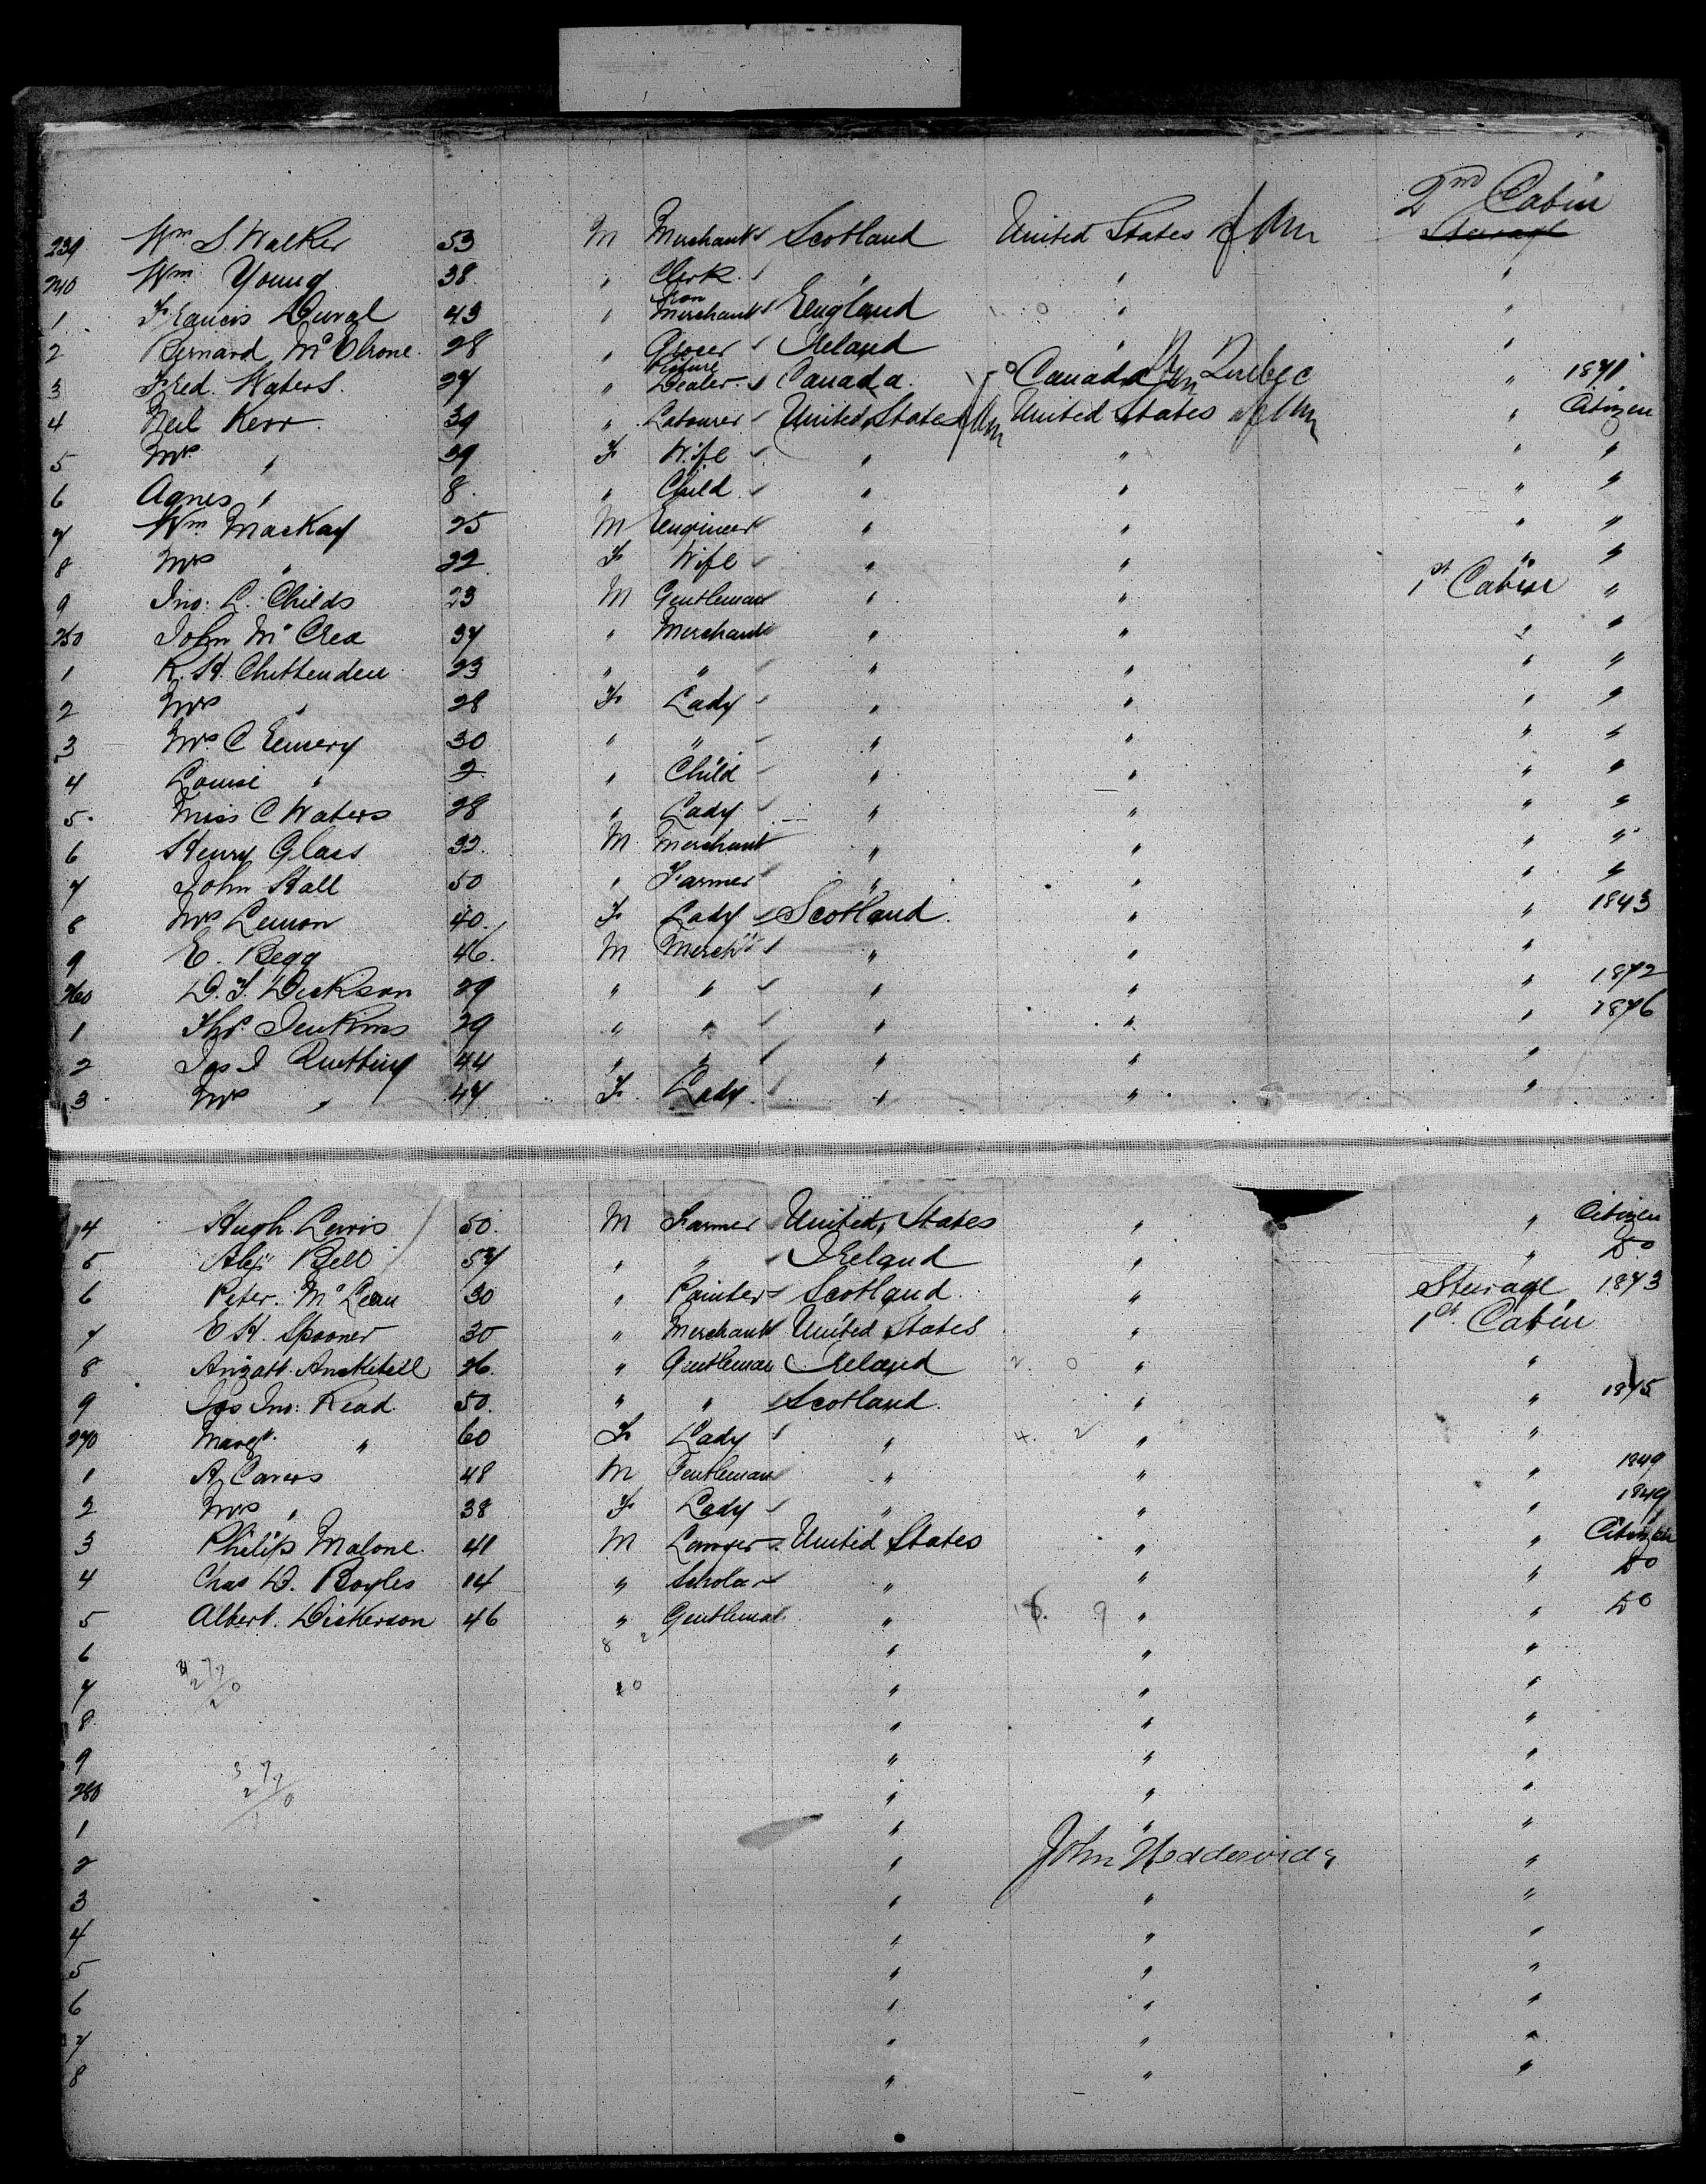 2nd Cabin
239 Wm S. Walker 53 M Merchant Scotland United States of Am Steerage
240 Wm Young 38 " Clerk " " "
1 Francis Duval 43 " Iron Merchant England " "
2 Bernard McElrone 28 " Grocer Ireland " "
3 Fred. Waters 27 " Picture Dealer Canada Canada Quebec " 1871
4 Neil Kerr 39 " Labourer United States Am United States of Am " Citizen
5 Mrs " 39 F Wife " " " "
6 Agnes " 8 " Child " " " "
7 Wm Mackay 25 M Engineer " " " "
8 Mrs " 22 F Wife " " " "
9 Jno: L. Childs 23 M Gentleman " " 1st Cabin "
250 John McCrea 37 " Merchant " " " "
1 R. H. Chittenden 23 " " " " " "
2 Mrs " 28 F Lady " " " "
3 Mrs C Emery 30 " " " " " "
4 Louise " 2 " Child " " " "
5 Miss C Waters 28 " Lady " " " "
6 Henry Glass 32 M Merchant " " " "
7 John Hall 50 " Farmer " " " "
8 Mrs Lemon 40 F Lady Scotland " " 1843
9 E. Begg 46 M Mercht " " "
260 D. F. Dickson 29 " " " " " 1872
1 Ths. Jenkins 29 " " " " " 1876
2 Jas J 44 " " " " "
3 Mrs " 47 F Lady " " "
4 Hugh Lewis 50 M Farmer United States " " Citizen
5 Alex Bell 57 " " Ireland " " Do
6 Peter McLean 30 " Painter Scotland " Steerage 1873
7 E H. Spooner 30 " Merchant United States " 1st Cabin
8 Anketell 26 " Gentleman Ireland 2 0 " "
9 Jas Jno: Read 50 " " Scotland " " 1875
270 Margt " 60 F Lady " 4 2 " "
1 A Cavers 48 M Gentleman " " " 1849
2 Mrs " 38 F Lady " " " 1849
3 Philip Malone 41 M Lawyer United States " " Citizen
4 Chas D. Boyles 14 " Scholar " " " Do
5 Albert Dickerson 46 " Gentleman " 9 " " Do
6 8 2 " " "
7 10 " " "
8 " " "
9 " " "
280 " " "
1 " " "
2 " John Hedderwick "
3 " " "
4 " " "
5 " " "
6 " " "
7 " " "
8 " " "